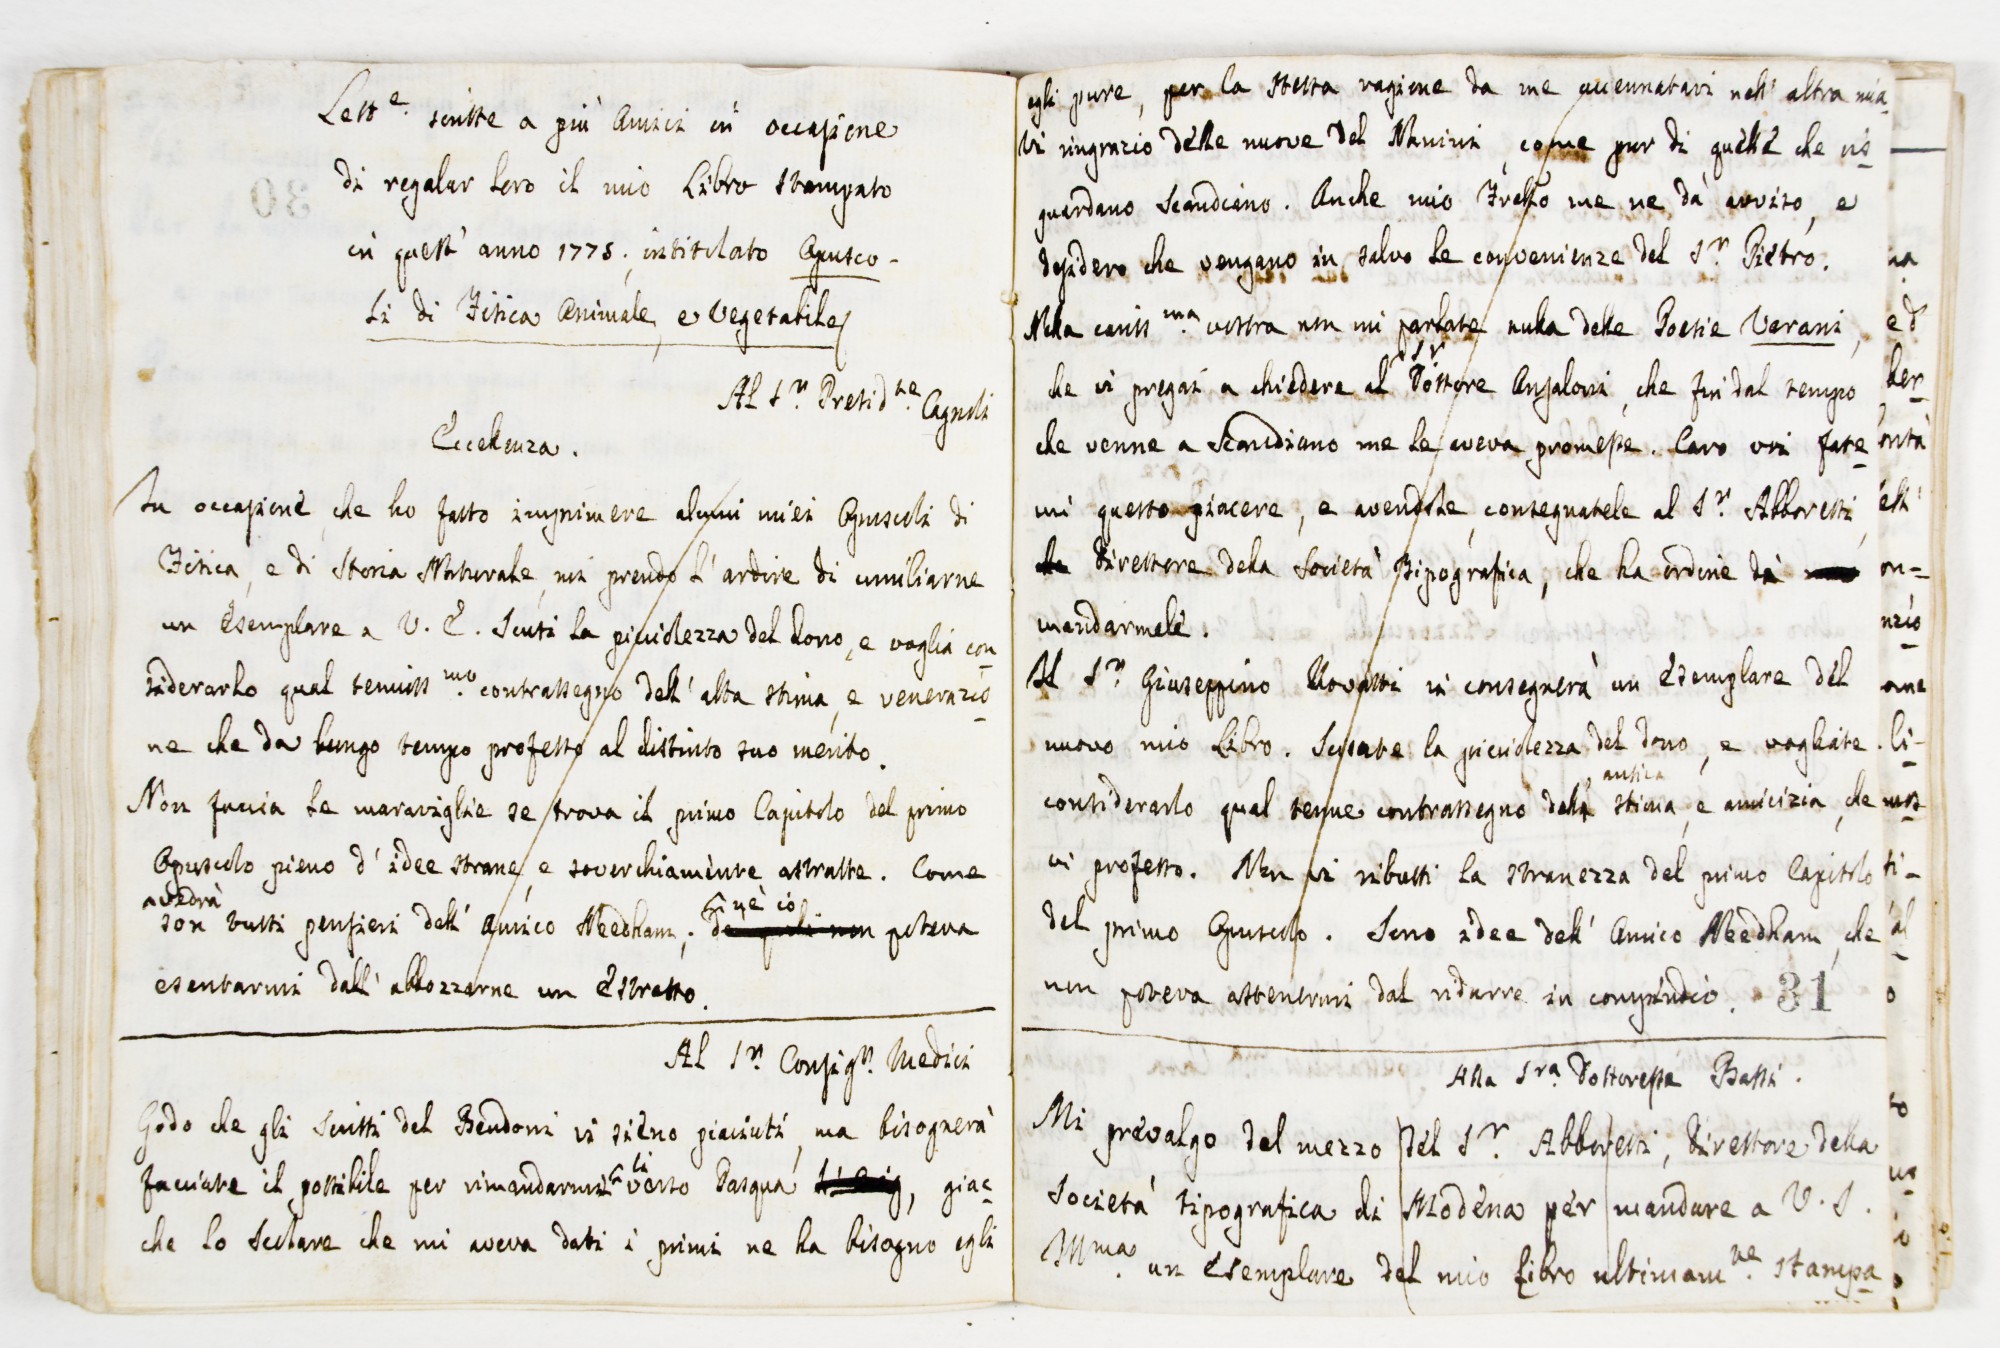 Lett.e scritte a più Amici in occasione
di regalar loro il mio Libro stampato
in quest' anno 1775, intitolato Opusco-
li di Fisica Animale, e Vegetabile
Al S.r Presid.te Cagnoli
Eccellenza.
In occasione, che ho fatto imprimere alcuni miei Opuscoli di
Fisica, e di Storia Naturale, mi prendo l' ardire di umiliarne
un Esemplare a V. E. Scusi la picciolezza del dono, e voglia con
siderarlo qual tenuiss.mo contrassegno dell' alta stima, e venerazio
ne che da lungo tempo professo al distinto suo merito.
Non faccia le maraviglie se trova il primo Capitolo del primo
Opuscolo pieno d' idee strane, e soverchiamente astratte. Come
vedrà
son tutti pensieri dell' Amico Needham, de' quali non poteva
esentarmi dall' abbozzarne un Estratto.
Al S.r Consig.r Medici
Godo che gli Scritti del Bendoni vi sieno piaciuti, ma bisognerà
facciate il possibile per rimandarmeli verso Pasqua, giac-
che lo Scolare che mi aveva dati i primi ne ha bisogno egli
egli pure, per la stessa ragione da me accennatavi nell' altra mia
Vi ringrazio delle nuove del Vanini, come pur di quelle che ris
guardano Scandiano. Anche mio Frello me ne dà avviso, e
desidero che vengano in salvo le convenienze del S.r Pietro.
Nella cariss.ma vostra non mi parlate nulla delle Poesie Varani,
S.r
che vi pregai a chiedere al Dottore Anjaloni, che fin dal tempo
che venne a Scandiano me le aveva promesse. Caro voi fate
mi questo piacere, e avendole, consegnatele al S.r Abboretti
Direttore della Società Tipografica, che ha ordine di
mandarmele.
Il S.r Giuseppino Rovatti vi consegnerà un Esemplare del
nuovo mio Libro. Scusate la picciolezza del dono, e vogliate
antica
considerarlo qual tenue contrassegno della stima, e amicizia, che
vi professo. Non vi ributti la stranezza del primo Capitolo
del primo Opuscolo. Sono idee dell' Amico Needham, che
non poteva astenermi dal ridurre in compendio. 31
Alla S.ra Dottoressa Bassi.
Mi prevalgo del mezzo del S.r Abboretti, Direttore della
Società tipografica di Modena per mandare a V. S.
Ill.ma un Esemplare del mio Libro ultimam.te stampa